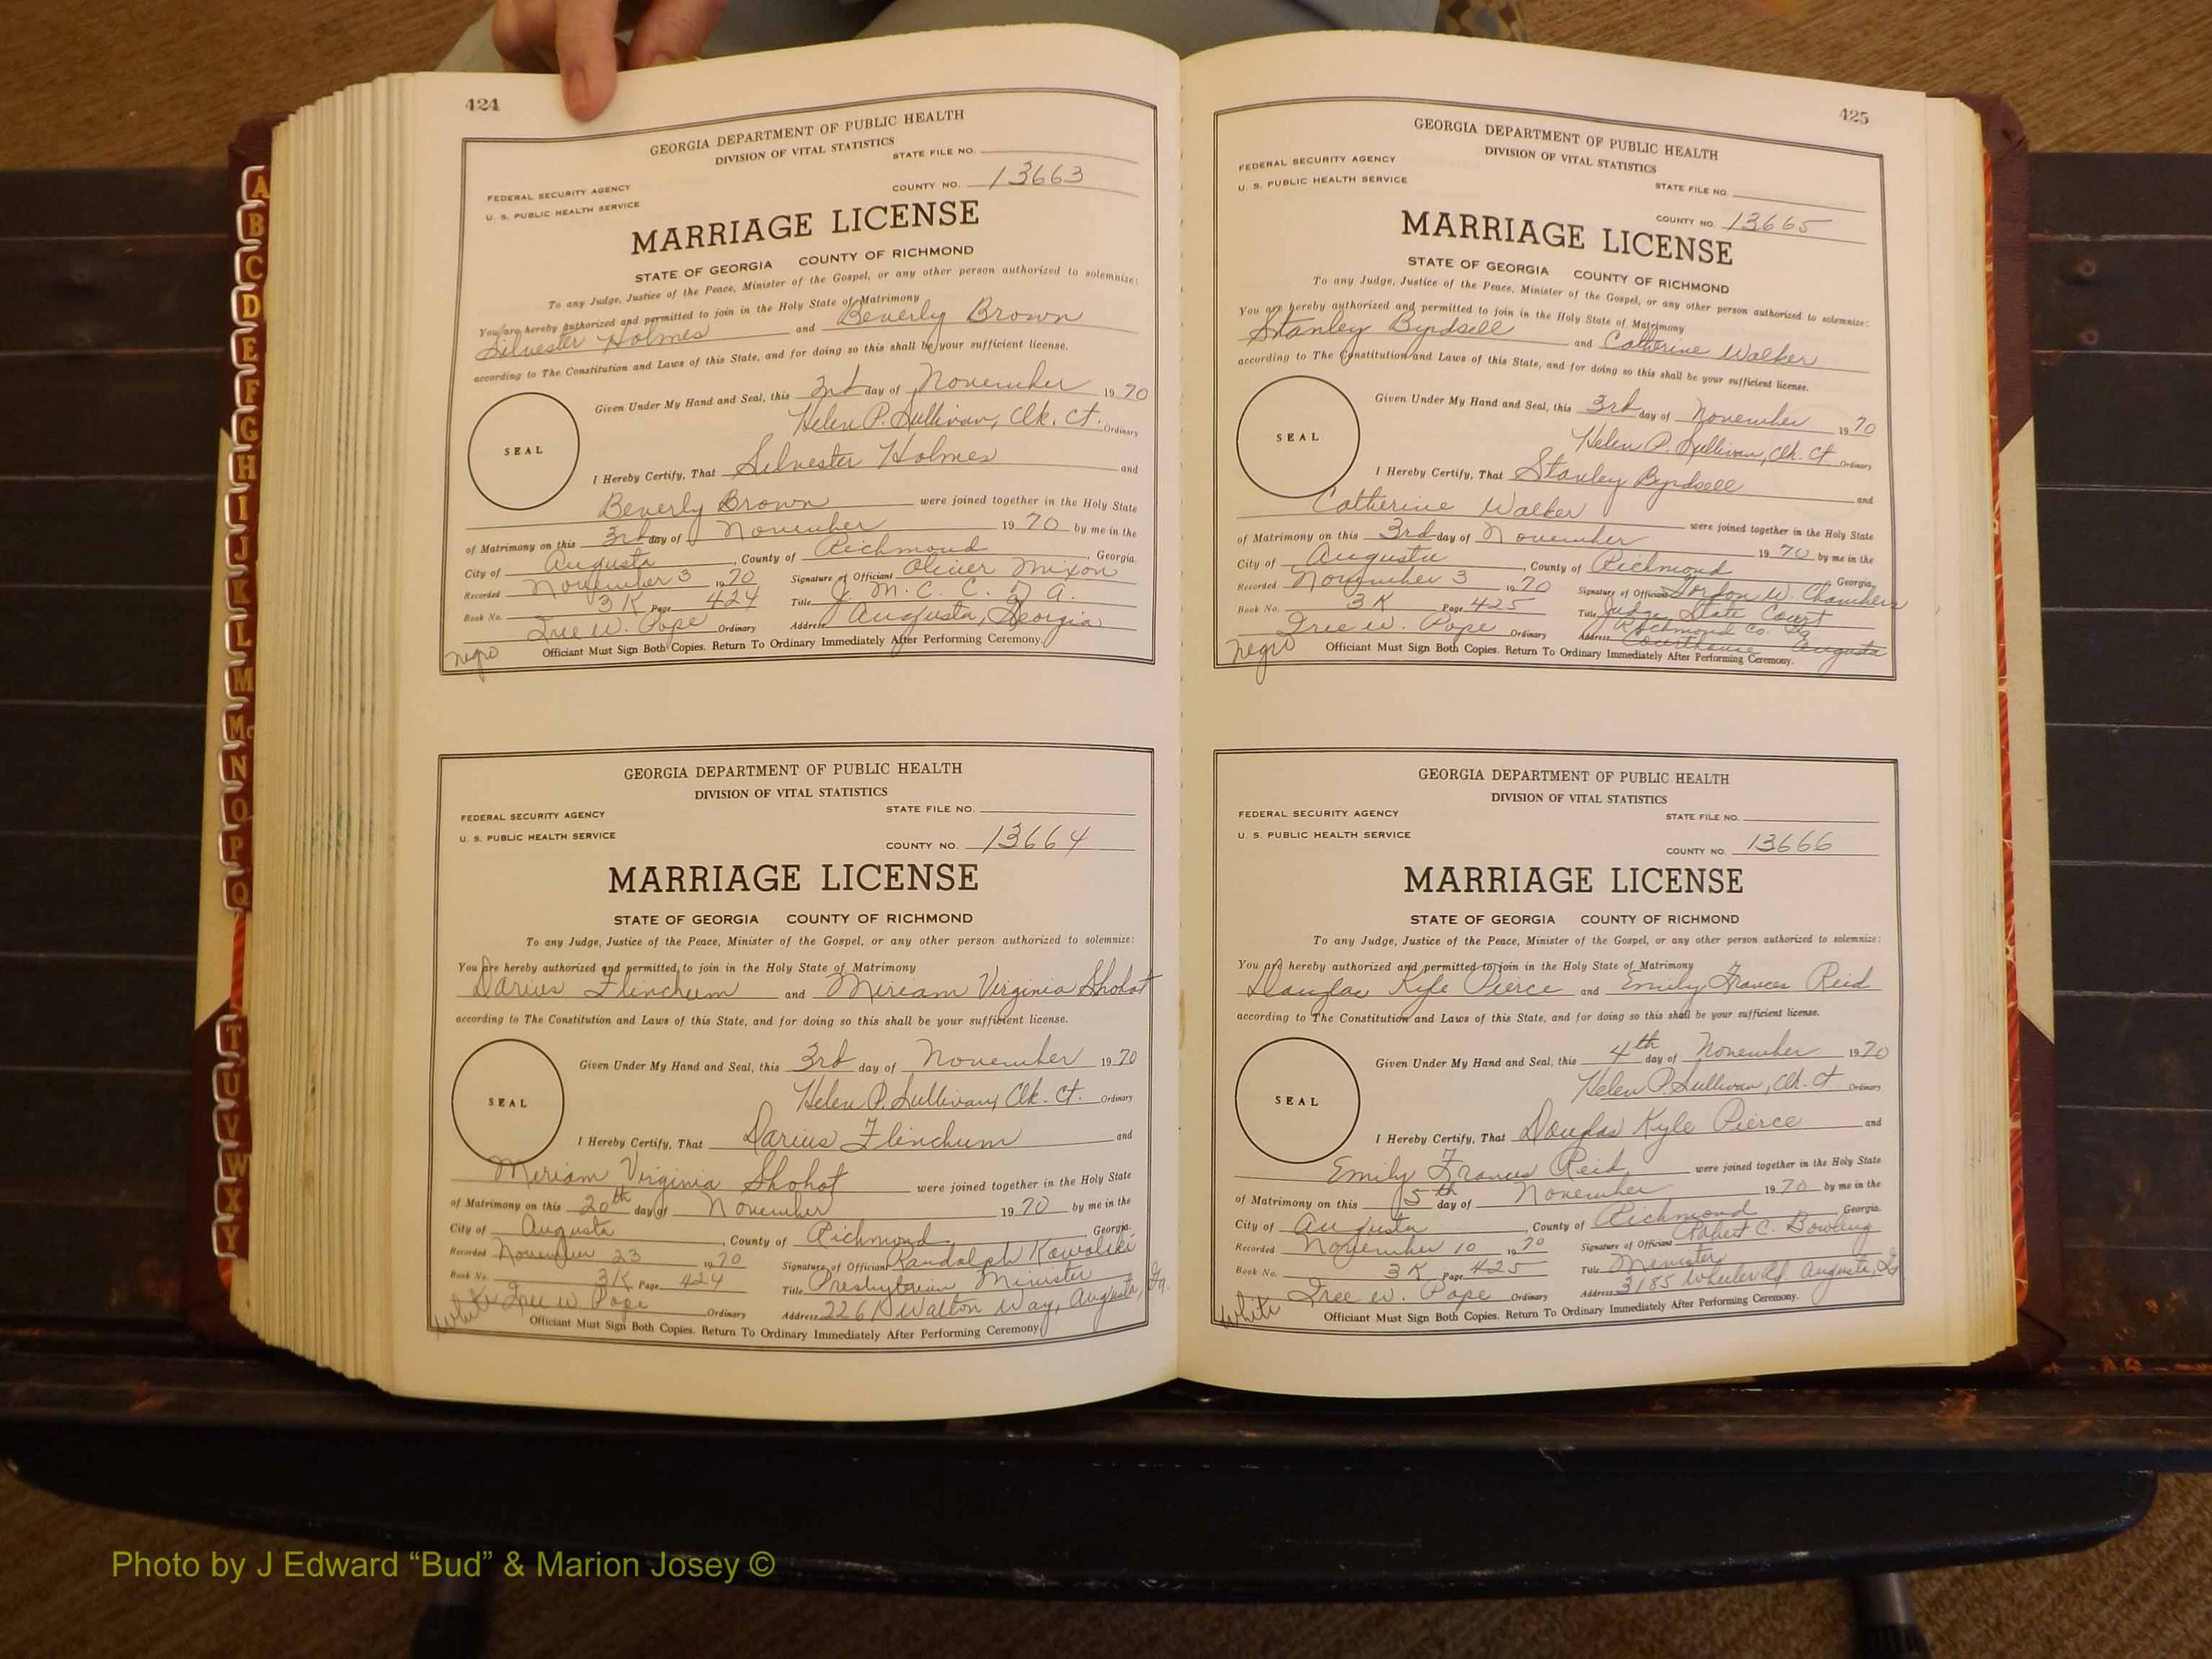 424
GEORGIA DEPARTMENT OF PUBLIC HEALTH
DIVISION OF VITAL STATISTICS
STATE FILE NO.
FEDERAL SECURITY AGENCY
COUNTY NO. 13663
U. S. PUBLIC HEALTH SERVICE
MARRIAGE LICENSE
STATE OF GEORGIA COUNTY OF RICHMOND
To any Judge, Justice of the Peace, Minister of the Gospel, or any other person authorized to solemnize:
You are hereby authorized and permitted to join in the Holy State of Matrimony
Silvester Holmes and Beverly Brown
according to The Constitution and Laws of this State, and for doing so this shall be your sufficient license.
Given Under My Hand and Seal, this day of November 1970
Helen P. Sullivan, Clk. Ct. Ordinary
SEAL
I Hereby Certify, That Silvester Holmes and
Beverly Brown were joined together in the Holy State
of Matrimony on this 3rd day of November 1970 by me in the
City of Augusta, County of Richmond, Georgia.
Recorded November 3 1970 Signature of Officiant Oliver Mixon
Book No. 3K Page 424 Title J. M. C. C. R. A.
Iree W. Pope Ordinary Address Augusta, Georgia
negro Officiant Must Sign Both Copies. Return To Ordinary Immediately After Performing Ceremony.
GEORGIA DEPARTMENT OF PUBLIC HEALTH
DIVISION OF VITAL STATISTICS
FEDERAL SECURITY AGENCY STATE FILE NO.
U. S. PUBLIC HEALTH SERVICE COUNTY NO. 13664
MARRIAGE LICENSE
STATE OF GEORGIA COUNTY OF RICHMOND
To any Judge, Justice of the Peace, Minister of the Gospel, or any other person authorized to solemnize:
You are hereby authorized and permitted to join in the Holy State of Matrimony
Darius Flinchum and Miriam Virginia Shohot
according to The Constitution and Laws of this State, and for doing so this shall be your sufficient license.
Given Under My Hand and Seal, this 3rd day of November 1970
Helen P. Sullivan, Clk. Ct. Ordinary
SEAL
I Hereby Certify, That Darius Flinchum and
Miriam Virginia Shohot were joined together in the Holy State
of Matrimony on this 20th day of November 1970 by me in the
City of Augusta, County of Richmond, Georgia.
Recorded November 23 1970 Signature of Officiant Randolph Kowalski
Book No. 3K Page 424 Title Presbyterian Minister
Iree W. Pope Ordinary Address 2261 Walton Way, Augusta, Ga.
white Officiant Must Sign Both Copies. Return To Ordinary Immediately After Performing Ceremony.
425
GEORGIA DEPARTMENT OF PUBLIC HEALTH
DIVISION OF VITAL STATISTICS
FEDERAL SECURITY AGENCY
STATE FILE NO.
U. S. PUBLIC HEALTH SERVICE
COUNTY NO. 13665
MARRIAGE LICENSE
STATE OF GEORGIA COUNTY OF RICHMOND
To any Judge, Justice of the Peace, Minister of the Gospel, or any other person authorized to solemnize:
You are hereby authorized and permitted to join in the Holy State of Matrimony
Stanley Byrdsell and Catherine Walker
according to The Constitution and Laws of this State, and for doing so this shall be your sufficient license.
Given Under My Hand and Seal, this 3rd day of November 1970
Helen P. Sullivan, Clk. Ct. Ordinary
SEAL
I Hereby Certify, That Stanley Byrdsell and
Catherine Walker were joined together in the Holy State
of Matrimony on this 3rd day of November 1970 by me in the
City of Augusta, County of Richmond Georgia.
Recorded November 3 1970 Signature of Officiant Gordon W. Chambers
Book No. 3K Page 425 Title Judge, State Court
Richmond Co. Ga
Iree W. Pope Ordinary Address Courthouse Augusta
negro Officiant Must Sign Both Copies. Return To Ordinary Immediately After Performing Ceremony.
GEORGIA DEPARTMENT OF PUBLIC HEALTH
DIVISION OF VITAL STATISTICS
FEDERAL SECURITY AGENCY STATE FILE NO.
U. S. PUBLIC HEALTH SERVICE COUNTY NO. 13666
MARRIAGE LICENSE
STATE OF GEORGIA COUNTY OF RICHMOND
To any Judge, Justice of the Peace, Minister of the Gospel, or any other person authorized to solemnize:
You are hereby authorized and permitted to join in the Holy State of Matrimony
Douglas Kyle Pierce and Emily Frances Reid
according to The Constitution and Laws of this State, and for doing so this shall be your sufficient license.
Given Under My Hand and Seal, this 4th day of November 1970
Helen P. Sullivan, Clk. Ct Ordinary
SEAL
I Hereby Certify, That Douglas Kyle Pierce and
Emily Frances Reid were joined together in the Holy State
of Matrimony on this 5th day of November 1970 by me in the
City of Augusta, County of Richmond, Georgia.
Recorded November 10 1970 Signature of Officiant Robert C. Bowling
Book No. 3K Page 425 Title Minister
Iree W. Pope Ordinary Address 3185 Wheeler Rd. Augusta, Ga
white Officiant Must Sign Both Copies. Return To Ordinary Immediately After Performing Ceremony.
A
B
C
D
E
F
G
H
I
J
K
L
M
Mc
N
O
P
Q
T
U
V
W
X
Y
Photo by J Edward “Bud” & Marion Josey ©